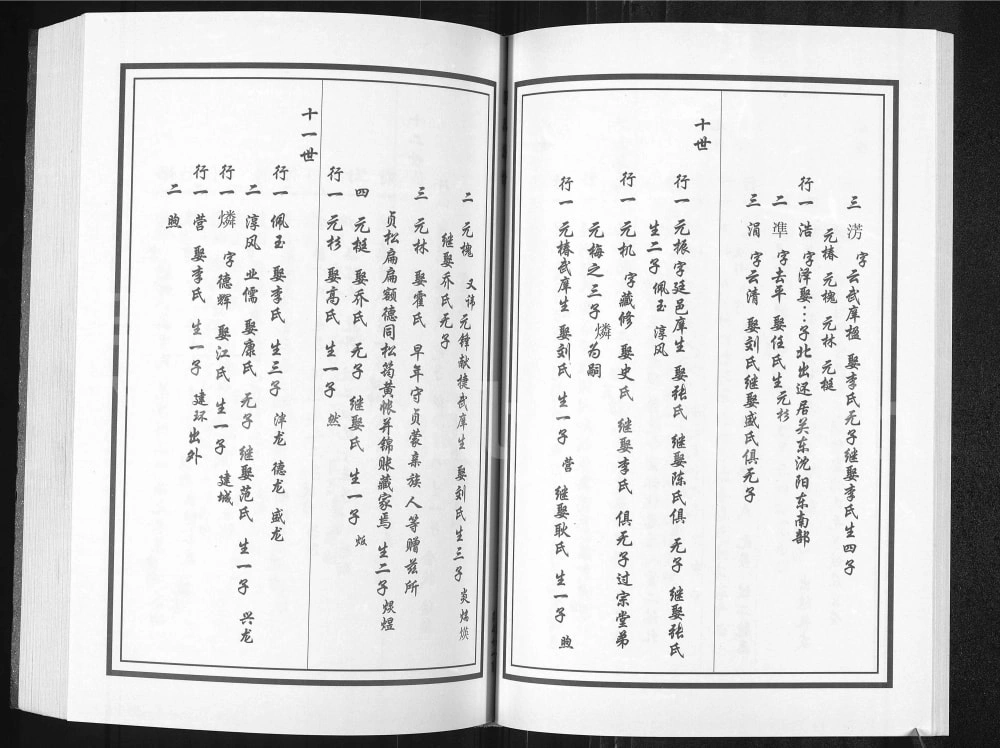 三 涝 字云武庠楹 娶李氏无子继娶李氏生四子
元椿 元槐 元林 元梃
行一 浩 字泽娶…子北出还居关东沈阳东南部
二 準 字去平 娶任氏生元杉
三 涓 字云清 娶刘氏继娶盛氏俱无子
十世
行一 元振字廷邑庠生 娶张氏 继娶陈氏俱 无子 继娶张氏
生二子 佩玉 淳风
行一 元机 字藏修 娶史氏 继娶李氏 俱无子过宗堂弟
元梅之三子燐为嗣
行一 元椿武庠生 娶刘氏 生一子 营 继娶耿氏 生一子 煦
二 元槐 又讳元锋献捷武庠生 娶刘氏生三子炎焙煐
继娶乔氏无子
三 元林 娶霍氏 早年守贞蒙亲族人等赠兹所
贞松扁扁额德同松筠黄帐并锦账藏家焉 生二子煐煜
四 元梃 娶乔氏 无子 继娶氏 生一子
行一 元杉 娶高氏 生一子 然
十一世
行一 佩玉 娶李氏 生三子 沣龙 德龙 盛龙
二 淳风 业儒 娶康氏 无子 继娶范氏 生一子 兴龙
行一 燐 字德辉 娶江氏 生一子 建城
行一 营 娶李氏 生一子 建环出外
二 煦